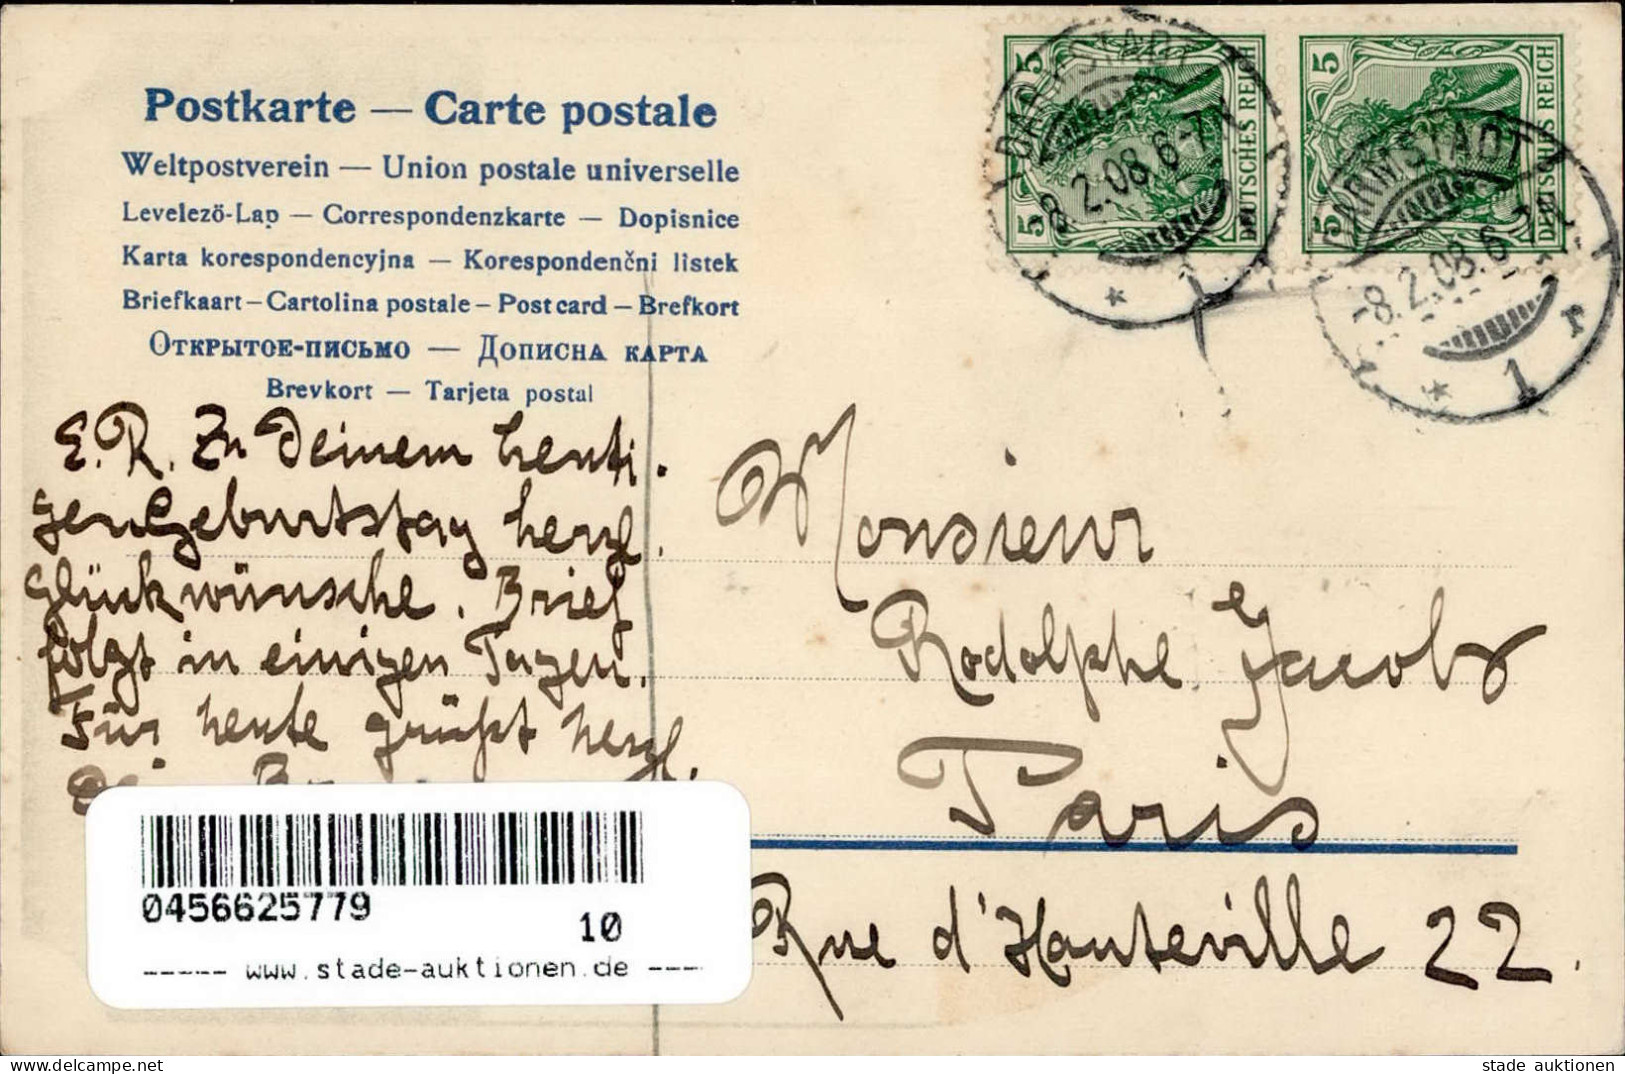 Postkarte — Carte postale
Weltpostverein — Union postale universelle
Levelező-Lap — Correspondenzkarte — Dopisnice
Karta korespondencyjna — Korespondenční listek
Briefkaart – Cartolina postale – Post card – Brefkort
Открытое-письмо — Дописна карта
Brevkort — Tarjeta postal
5 5 DEUTSCHES REICH
5 5 DEUTSCHES REICH
DARMSTADT
8.2.08.6-7
* 1
DARMSTADT
-8.2.08.6-7
* 1 r
E.R. Zu Deinem heuti.
gen Geburtstag herzl.
Glückwünsche. Brief
folgt in einigen Tagen.
Für heute grüßt herzl.
Monsieur
Rodolphe Jacobs
Paris
Rue d'Hauteville 22.
0456625779
10
----- www.stade-auktionen.de ----
www.delcampe.net
stade auktionen